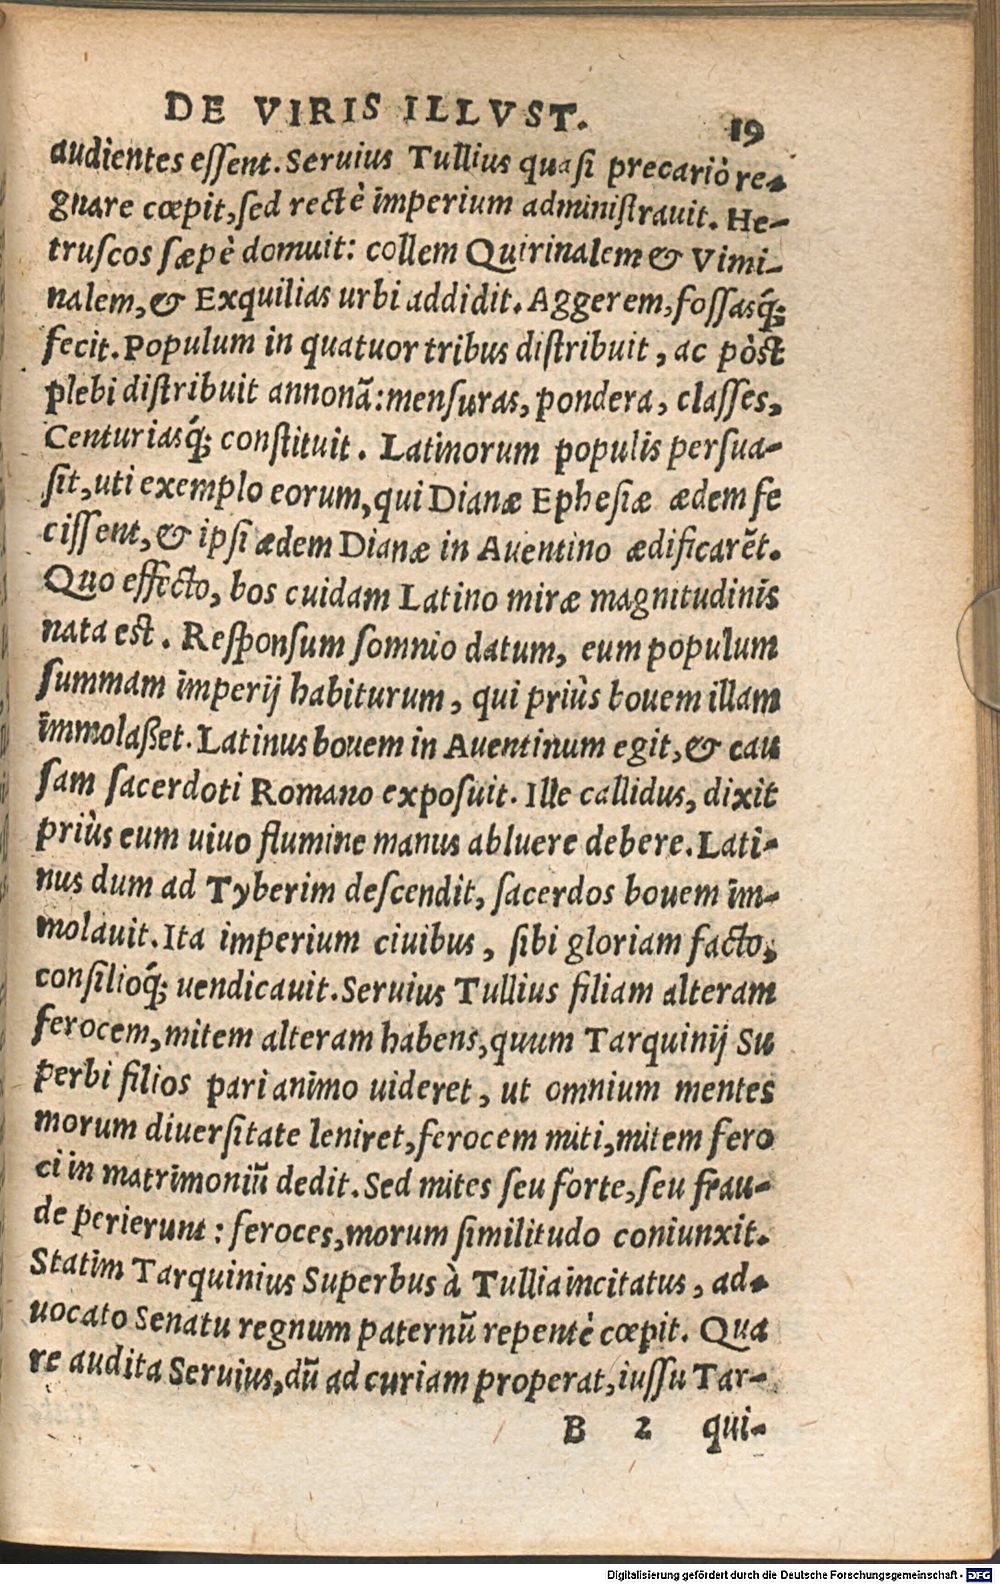 DE VIRIS ILLVST. 19
audientes eſſent. Seruius Tullius quaſi precariò re-
gnare cœpit, ſed rectè imperium adminiſtrauit. He-
truſcos ſæpè domuit: collem Quirinalem & Vimi-
nalem, & Exquilias urbi addidit. Aggerem, foſſasq́;
fecit. Populum in quatuor tribus diſtribuit, ac pòst
plebi diſtribuit annonã: menſuras, pondera, claſſes,
Centuriasq́; conſtituit. Latinorum populis perſua-
ſit, uti exemplo eorum, qui Dianæ Epheſiæ ædem fe
ciſſent, & ipſi ædem Dianæ in Auentino ædificarẽt.
Quo effecto, bos cuidam Latino miræ magnitudinis
nata est. Reſponſum ſomnio datum, eum populum
ſummam imperij habiturum, qui priùs bouem illam
immolaßet. Latinus bouem in Auentinum egit, & cau
ſam ſacerdoti Romano expoſuit. Ille callidus, dixit
priùs eum uiuo flumine manus abluere debere. Lati-
nus dum ad Tyberim deſcendit, ſacerdos bouem im-
molauit. Ita imperium ciuibus, ſibi gloriam facto,
conſilioq́; uendicauit. Seruius Tullius filiam alteram
ferocem, mitem alteram habens, quum Tarquinij Su
perbi filios pari animo uideret, ut omnium mentes
morum diuerſitate leniret, ferocem miti, mitem fero
ci in matrimoniũ dedit. Sed mites ſeu forte, ſeu frau-
de perierunt: feroces, morum ſimilitudo coniunxit.
Statim Tarquinius Superbus à Tullia incitatus, ad-
uocato Senatu regnum paternũ repentè cœpit. Qua
re audita Seruius, dũ ad curiam properat, iuſſu Tar-
B 2 qui-
Digitalisierung gefördert durch die Deutsche Forschungsgemeinschaft - DFG